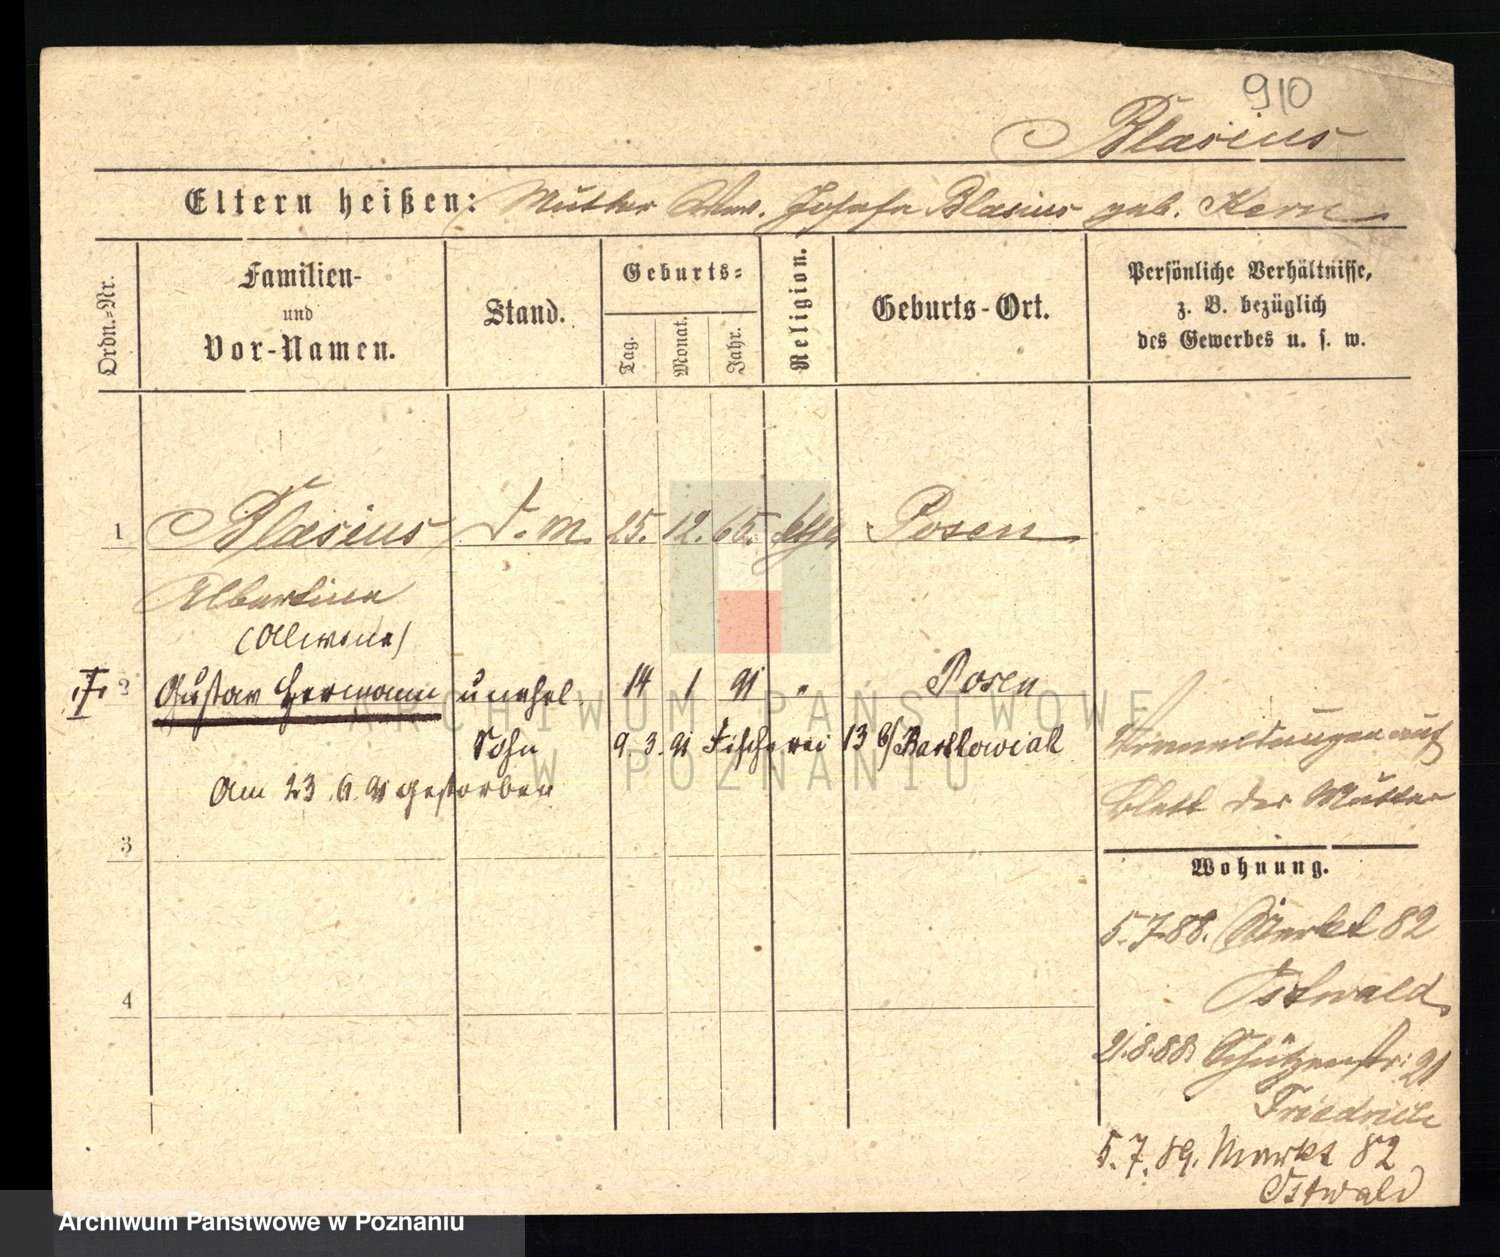 910
Blasius
Eltern heißen: Mutter Wwe. Josefa Blasius geb. Kern
Ordn.-Nr.
Familien- und Vor-Namen.
Stand.
Geburts-
Tag.
Monat.
Jahr.
Religion.
Geburts-Ort.
Persönliche Verhältnisse,
z. B. bezüglich
des Gewerbes u. s. w.
1 Blasius D. m. 25. 12. 65. kth Posen
Albertine
(Alwine)
2 Gustav Hermann unehel. 14 1 91 " Posen
Sohn 9. 3. 91 Fischerei 13 b/ Bartkowiak
Am 23. 6. 91 gestorben
auf
Blatt der Mutter
3
4
Wohnung.
5.7.88. Markt 82
Ostwald
21.8.88 Schützenstr. 21
Friedrich
5.7.89. Markt 82
Ostwald
ARCHIWUM PAŃSTWOWE
W POZNANIU
Archiwum Państwowe w Poznaniu